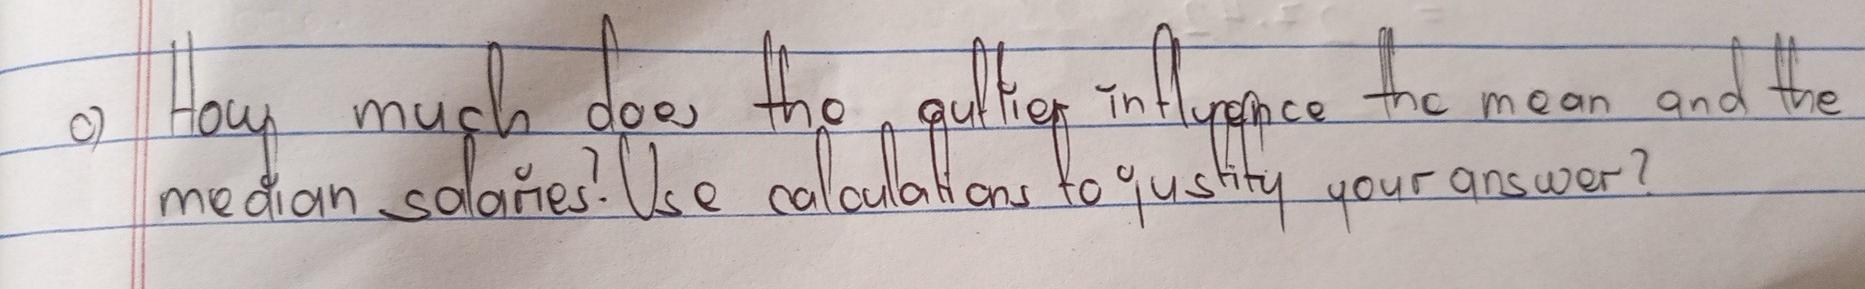 c) How much does the outlier influence the mean and the
median salaries? Use calculations to justify your answer?